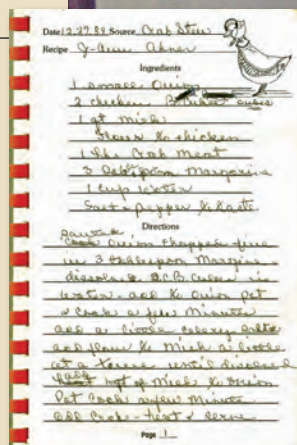 Date 12.27.89 Source Crab Stew
Recipe J-Ann Abner
Ingredients
1 small Onion
2 chicken B. Cubes cubes
1 qt Milk
flour to thicken
1 lb. Crab Meat
3 tablespoon Margarine
1 cup Water
Salt & pepper to taste
Directions
Sauted
Onion chopped fine
in 3 tablespoon Margine -
dissolved 2 C.B. Cubes in
Water - add to Onion Pot
& Cook a few Minutes
add a little celery salt
add flour to Milk a little
at a time until dissolved
add rest of Milk to Onion
Pot Cook a few Minute
add Crab - heat & serve
Page 1